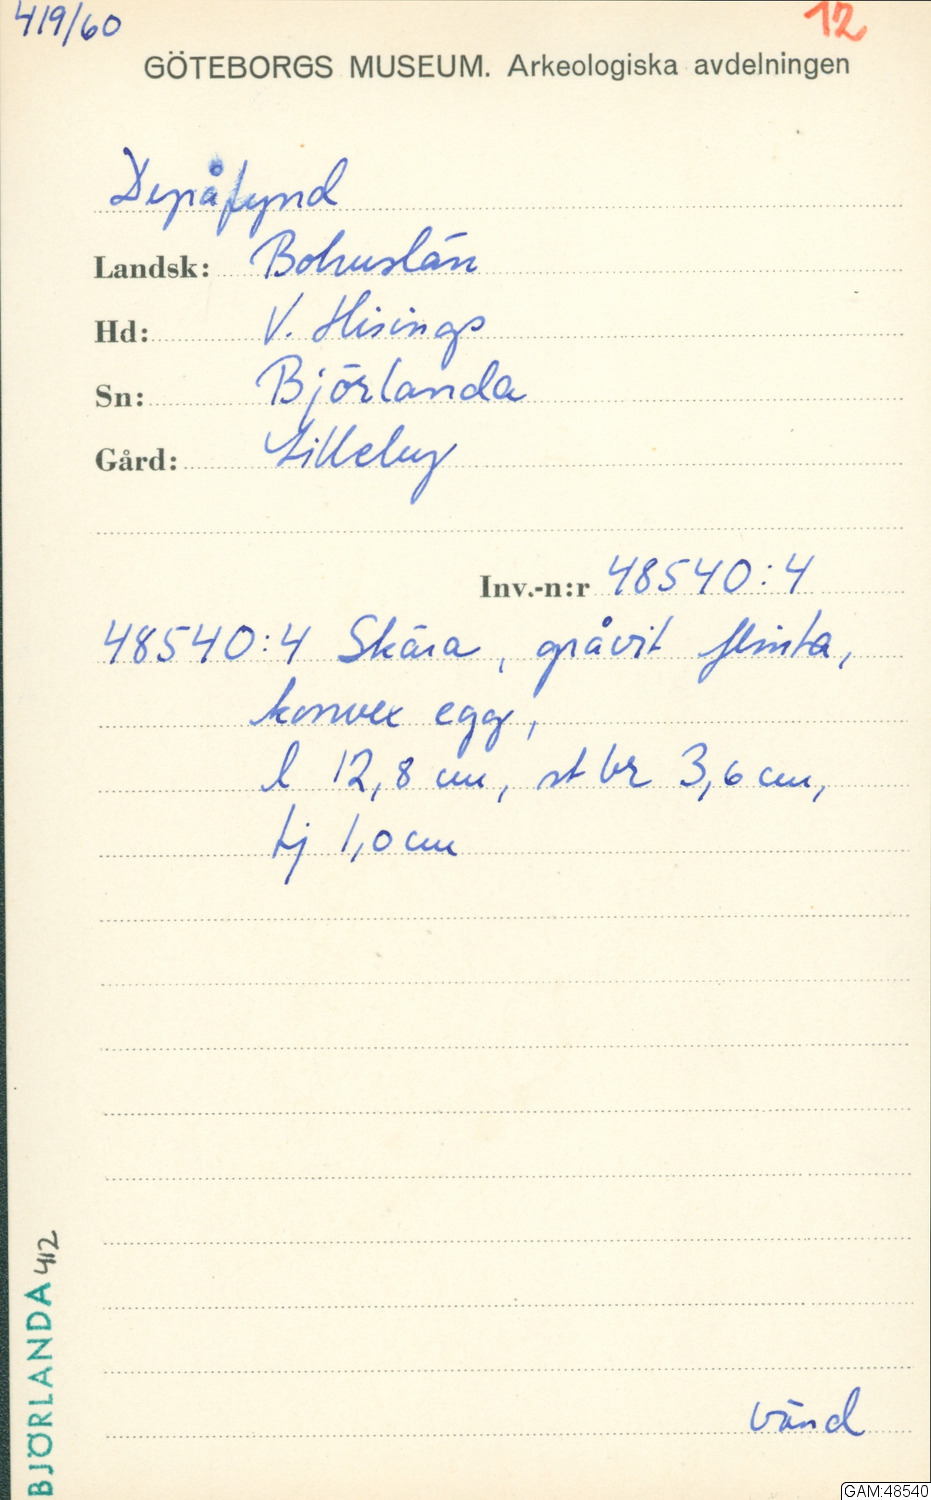 419/60
12
GÖTEBORGS MUSEUM. Arkeologiska avdelningen
Depåfynd
Landsk: Bohuslän
Hd: V. Hisings
Sn: Björlanda
Gård: Lilleby
Inv.-n:r 48540:4
48540:4 Skära, gråvit flinta,
konvex egg,
l 12,8 cm, st br 3,6 cm,
tj 1,0 cm
BJÖRLANDA 412
vänd
GAM:48540